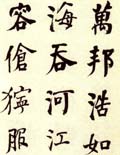 萬邦浩如
海吞河江
容傖獰服